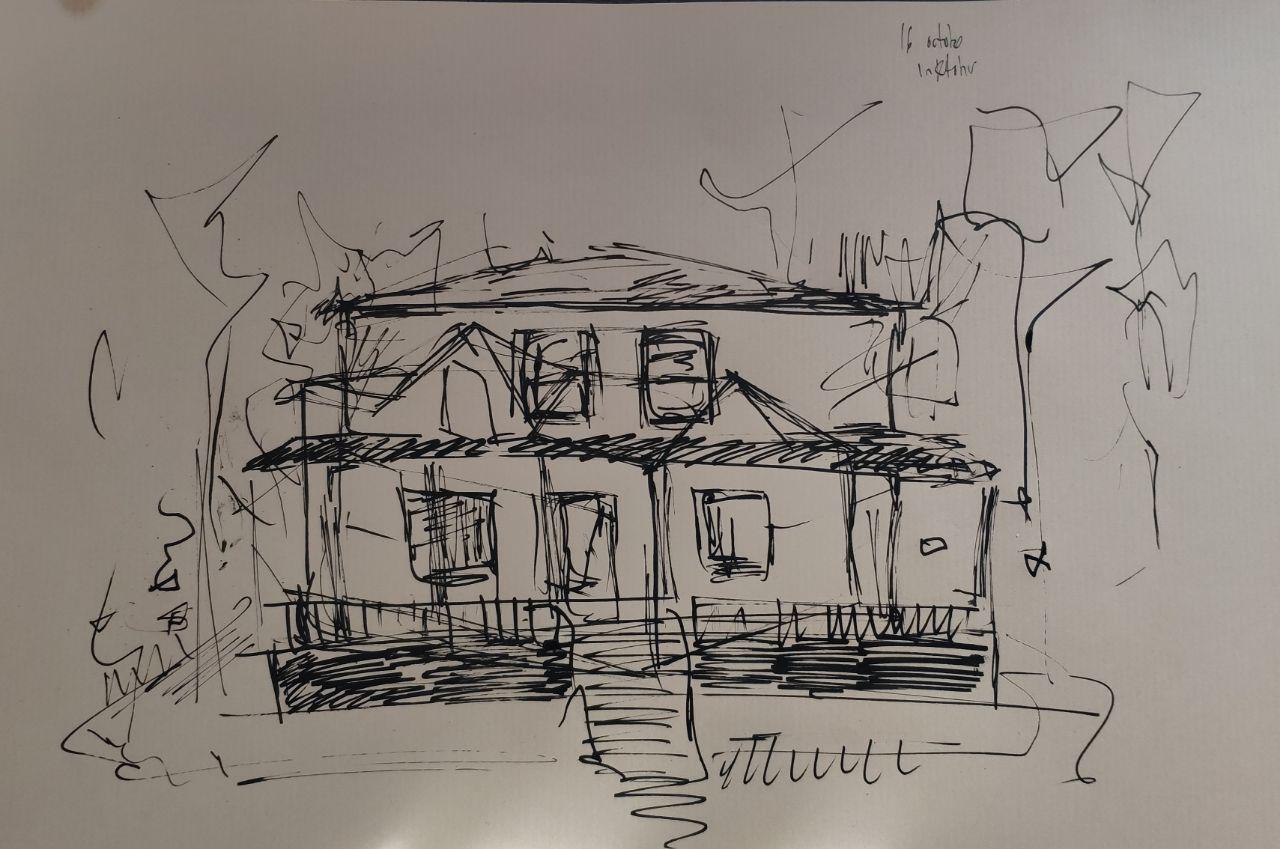 16 octobe
inktobr